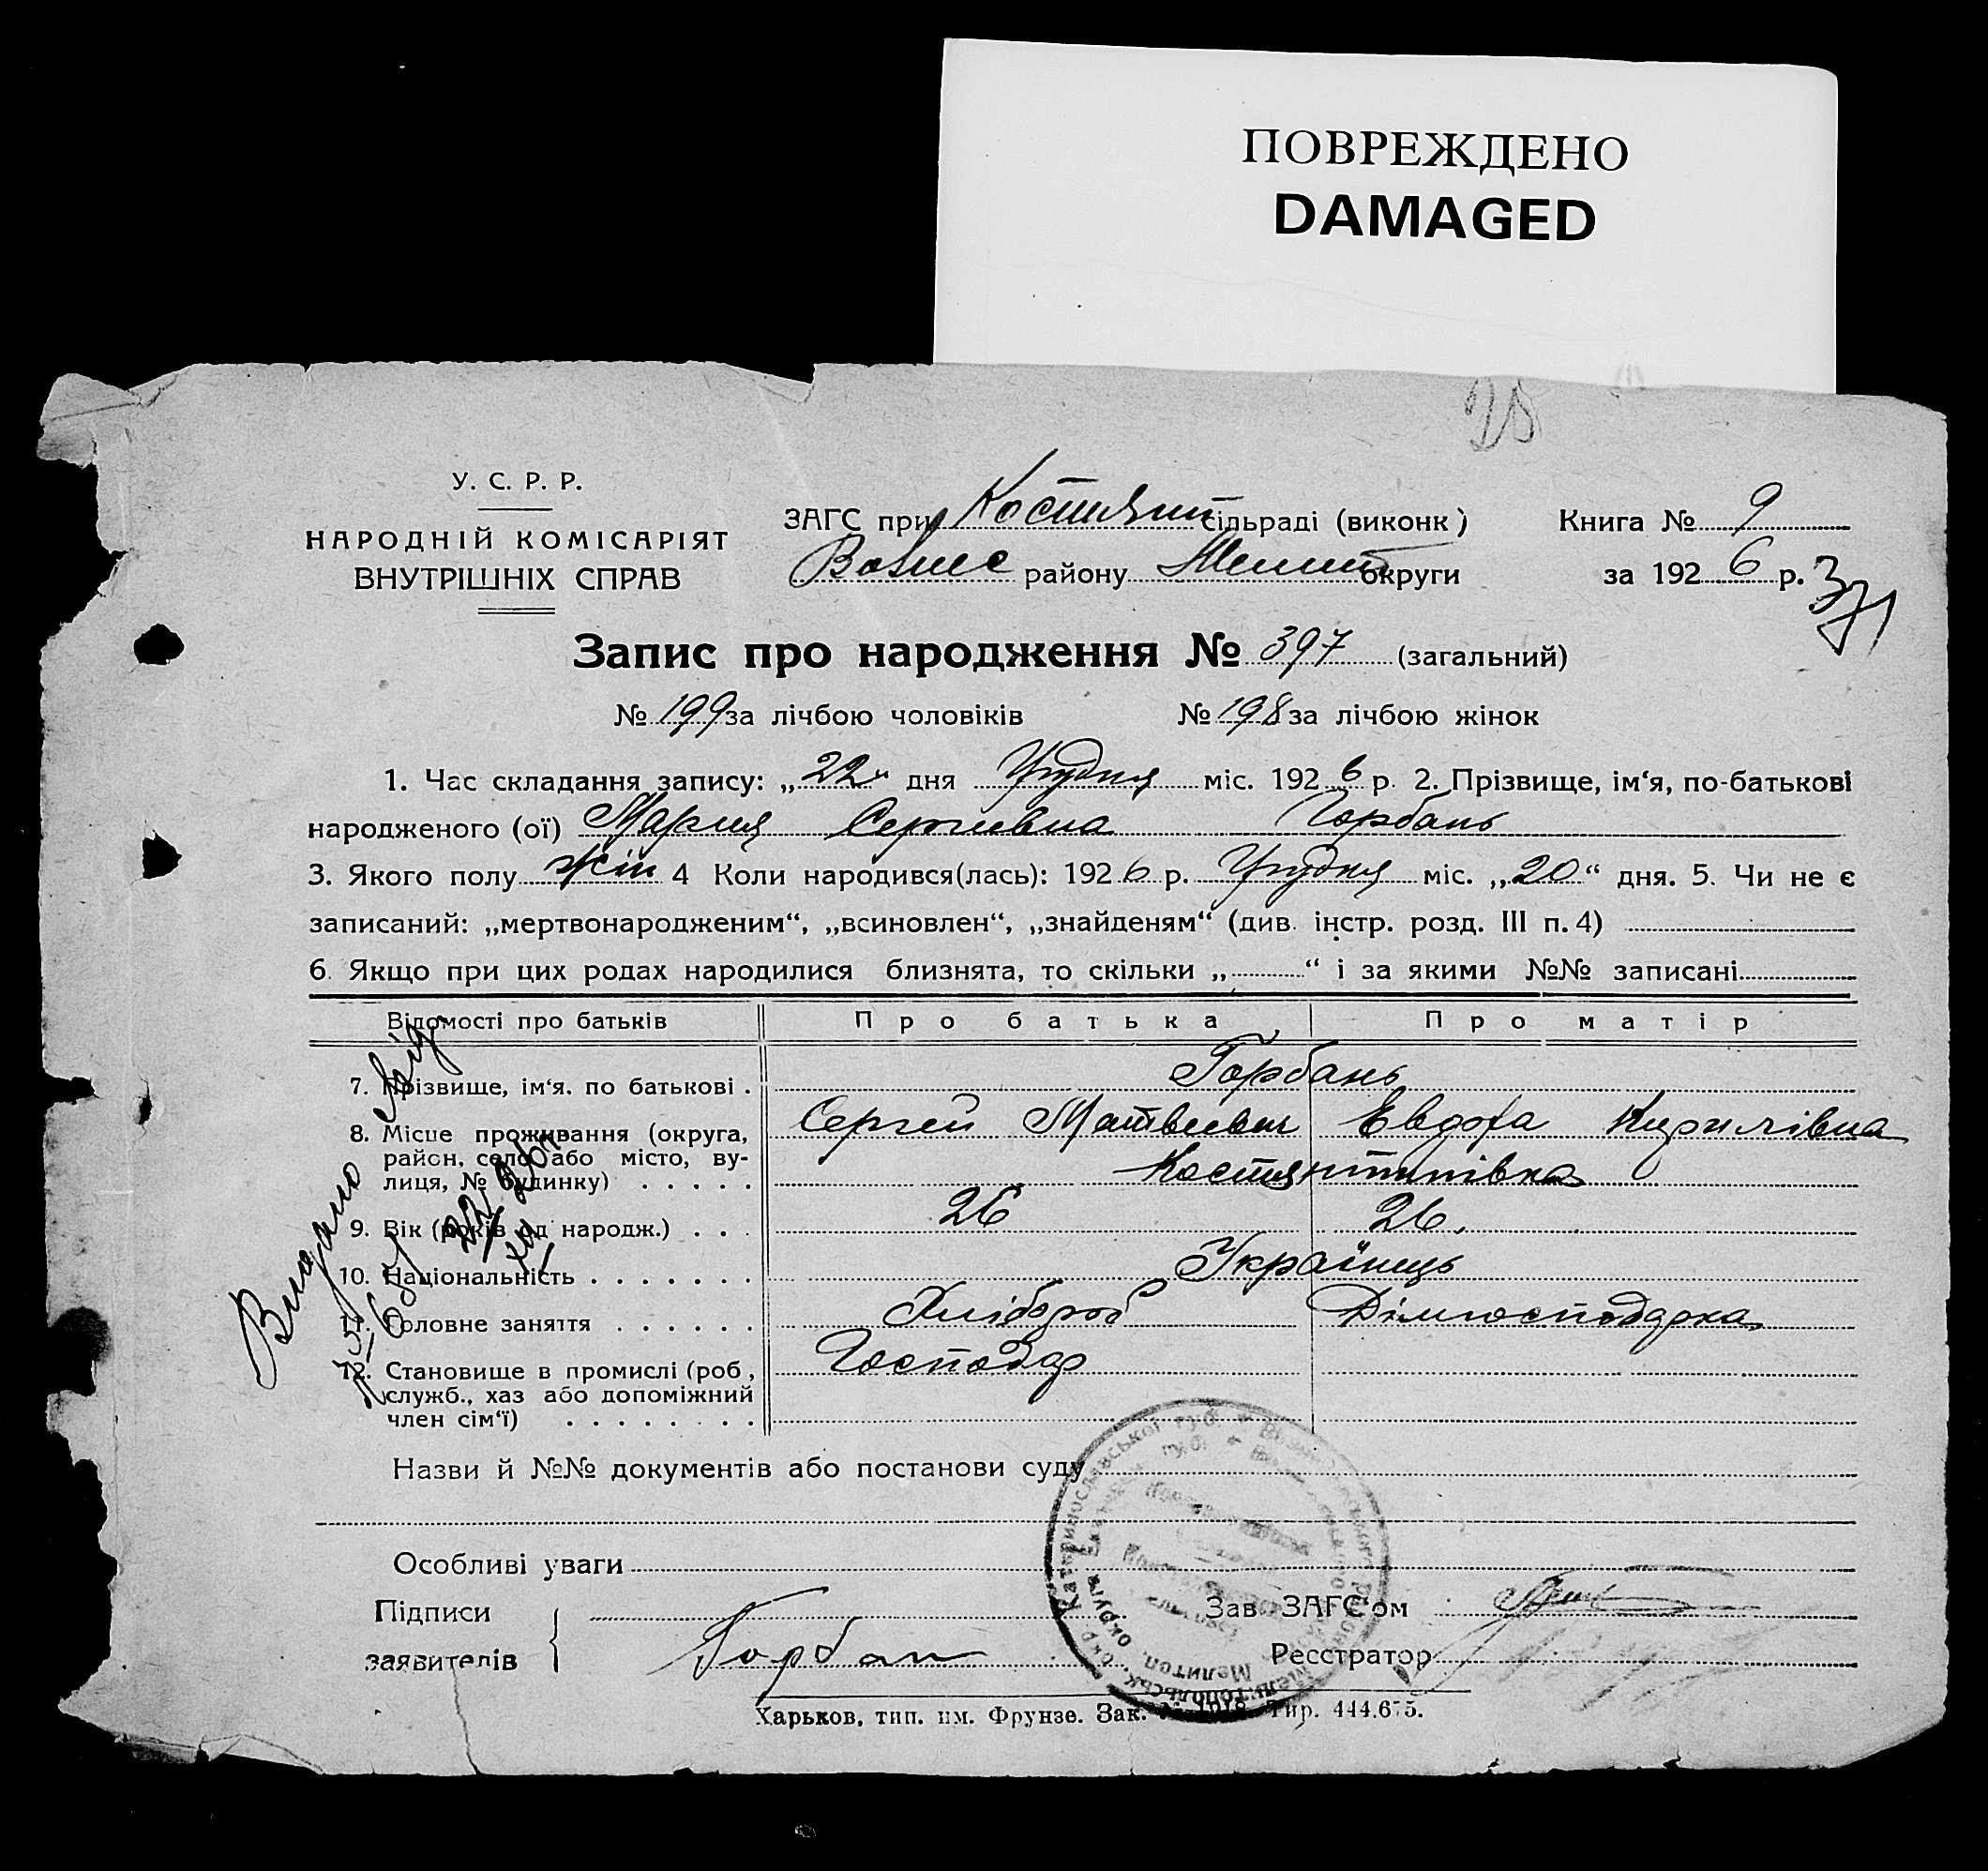 ПОВРЕЖДЕНО
DAMAGED
У. С. Р. Р.
НАРОДНІЙ КОМІСАРІЯТ
ВНУТРІШНІХ СПРАВ
ЗАГС при Костянт сільраді (виконк) Книга № 9
Вознес району Мелит округи за 1926 р. 371
Запис про народження № 397 (загальний)
№ 199 за лічбою чоловіків № 198 за лічбою жінок
1. Час складання запису: „22“ дня Грудня міс. 1926 р. 2. Прізвище, ім‘я, по-батькові
народженого (ої) Мария Сергиевна Горбань
3. Якого полу жін 4 Коли народився(лась): 1926 р. Грудня міс. „20“ дня. 5. Чи не є
записаний: „мертвонародженим“, „всиновлен“, „знайденям“ (див. інстр. розд. III п. 4)
6. Якщо при цих родах народилися близнята, то скільки „ “ і за якими №№ записані
Відомості про батьків Про батька Про матір
7. Прізвище, ім‘я, по батькові . Горбань
8. Місце проживання (округа, Сергей Матвеевич Евдоха Кирилівна
район, село або місто, ву-
лиця, № будинку) . . . . . Костянтинівка
9. Вік (років од народж.) . . . 26 26.
10. Національність . . . . . . . Українець
11. Головне заняття . . . . . . Хлібороб Дімгосподарка
12. Становище в промислі (роб, Господар
служб., хаз або допоміжний
член сім‘ї) . . . . . . . .
Видано
Назви й №№ документів або постанови суду
Особливі уваги
Підписи Зав. ЗАГС‘ом
заявителів Горбан Реєстратор
Харьков, тип. им. Фрунзе. Зак. № 1018. Тир. 444.675.